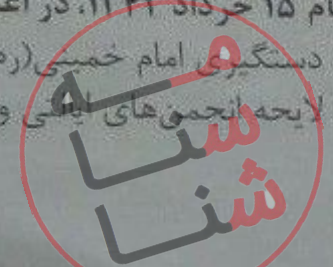 ۱۵ خرداد ۱۳۴۲، در
دستگیری امام خمینی(ره
لایحه انجمن‌های ایالتی و
مه سا شنا